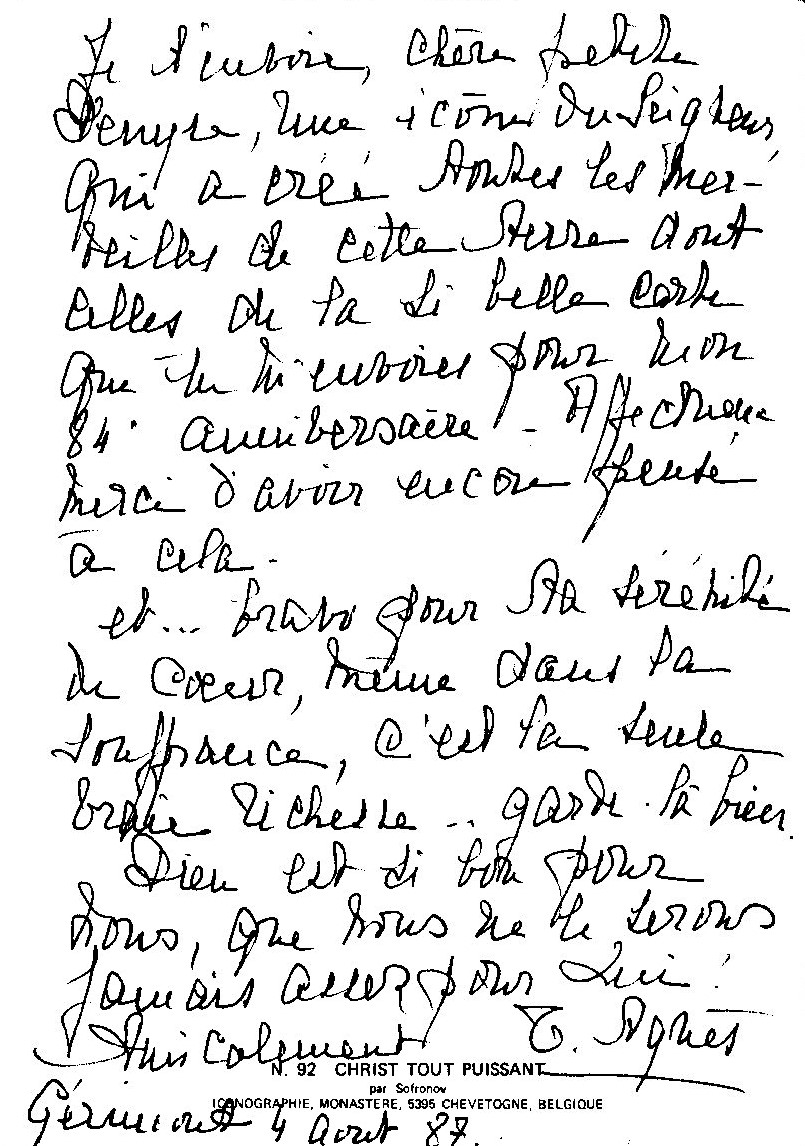 Je t'envoie, chère petite
Denyse, une icône du Seigneur,
qui a créé toutes les mer-
veilles de cette terre dont
celles de la si belle carte
que tu m'envoies pour mon
84° anniversaire - Affectueux
merci d'avoir encore pensé
à cela -
et... bravo pour ta sérénité
du Coeur, même dans la
souffrance, c'est la seule
vraie richesse .. garde-là bien.
Dieu est si bon pour
nous, que nous ne le serons
jamais assez pour Lui !
Amicalement T. Agnès
N. 92 CHRIST TOUT PUISSANT
par Sofronov
ICONOGRAPHIE, MONASTERE, 5395 CHEVETOGNE, BELGIQUE
4 Août 87.